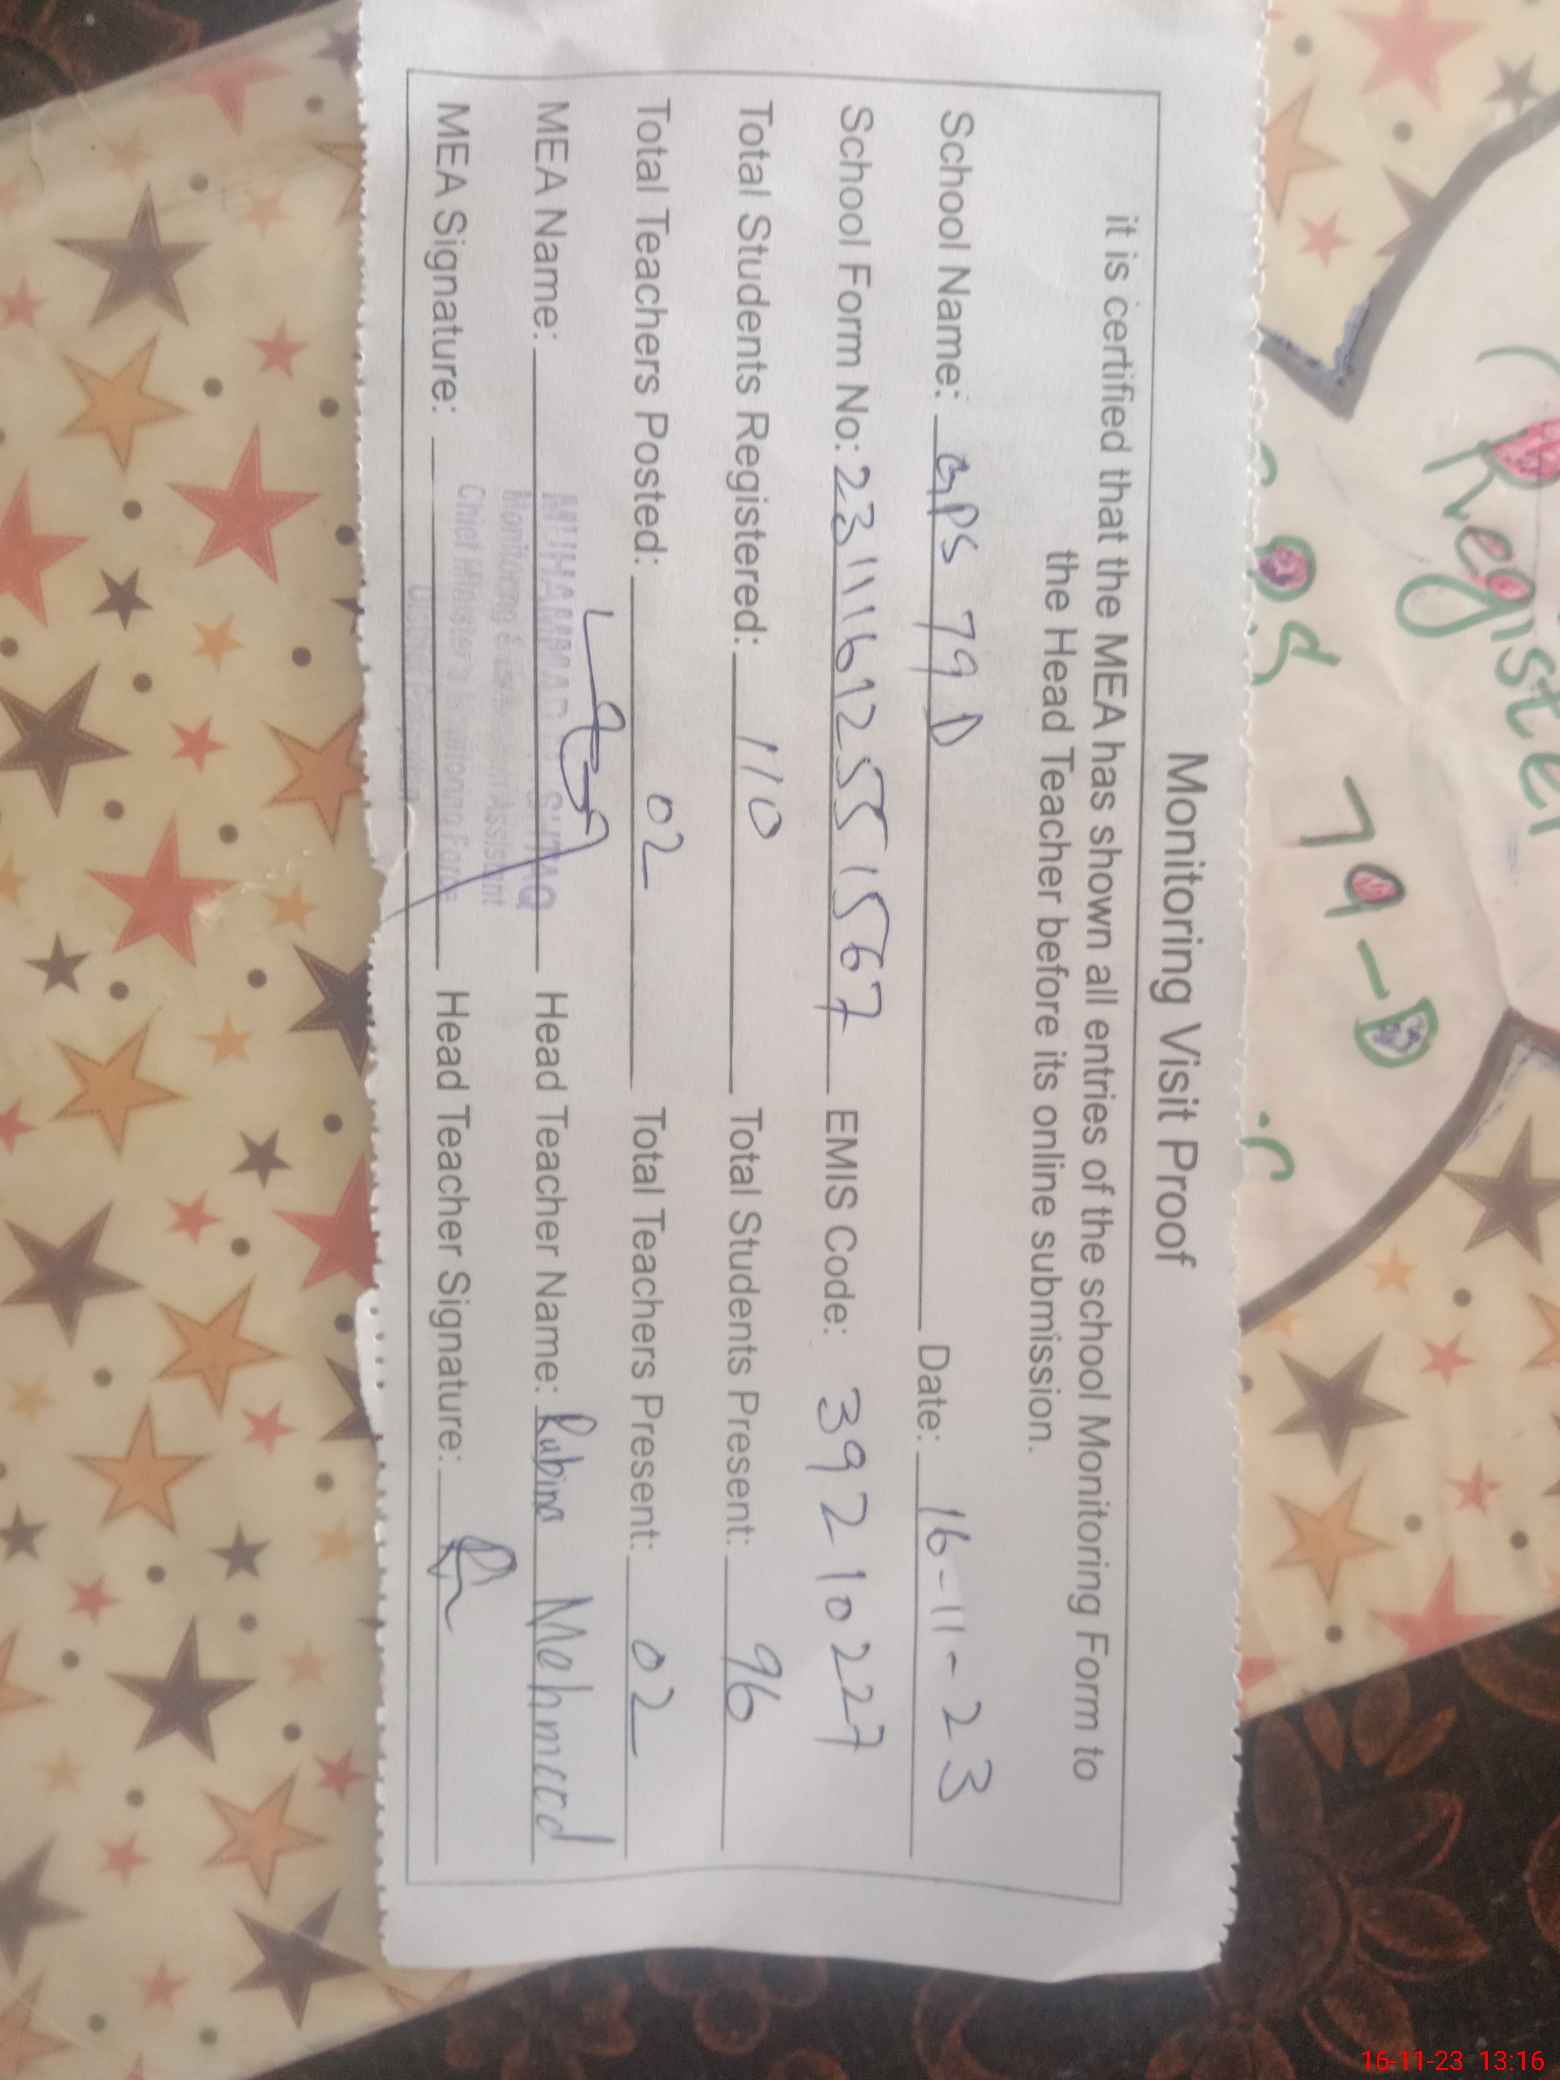 Monitoring Visit Proof
it is certified that the MEA has shown all entries of the school Monitoring Form to
the Head Teacher before its online submission.
School Name: GPS 79 D Date: 16-11-23
School Form No: 231116125515 67 EMIS Code: 39210227
Total Students Registered: 110 Total Students Present: 96
Total Teachers Posted: 02 Total Teachers Present: 02
MEA Name: MUHAMMAD Head Teacher Name: Rubina Mehmood
Monitoring Assistant
MEA Signature: Head Teacher Signature:
Chief Minister's Monitoring Force
Register
79-D
16-11-23 13:16